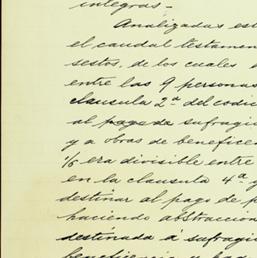 íntegras_
Analizadas est
el caudal testamen
sestos, de los cuales
entre las 9 personas
clausula 2ª del codic
al pago de sufragi
y a obras de beneficen
1/6 era divisible entre
en la clausula 4ª y
destinar al pago de p
haciendo abstracción
destinada á sufragi
beneficencia y